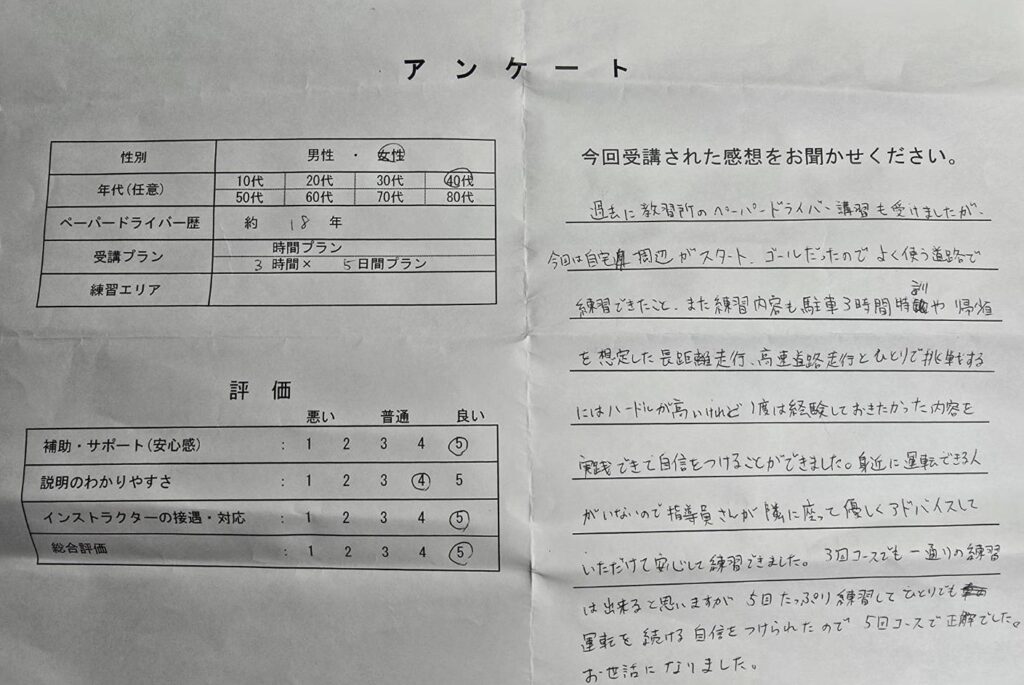 アンケート
性別 男性 ・ 女性
年代(任意) 10代 20代 30代 40代
50代 60代 70代 80代
ペーパードライバー歴 約 18 年
受講プラン 時間プラン
3 時間× 5日間プラン
練習エリア
評価
悪い 普通 良い
補助・サポート(安心感) : 1 2 3 4 5
説明のわかりやすさ : 1 2 3 4 5
インストラクターの接遇・対応 : 1 2 3 4 5
総合評価 : 1 2 3 4 5
今回受講された感想をお聞かせください。
過去に教習所のペーパードライバー講習も受けましたが、
今回は自宅周辺がスタート、ゴールだったのでよく使う道路で
練習できたこと、また練習内容も駐車3時間特訓や帰省
を想定した長距離走行、高速道路走行とひとりで挑戦する
にはハードルが高いけれど1度は経験しておきたかった内容を
実践できて自信をつけることができました。身近に運転できる人
がいないので指導員さんが隣に座って優しくアドバイスして
いただけて安心して練習できました。3回コースでも一通りの練習
は出来ると思いますが5回たっぷり練習してひとりでも
運転を続ける自信をつけられたので5回コースで正解でした。
お世話になりました。